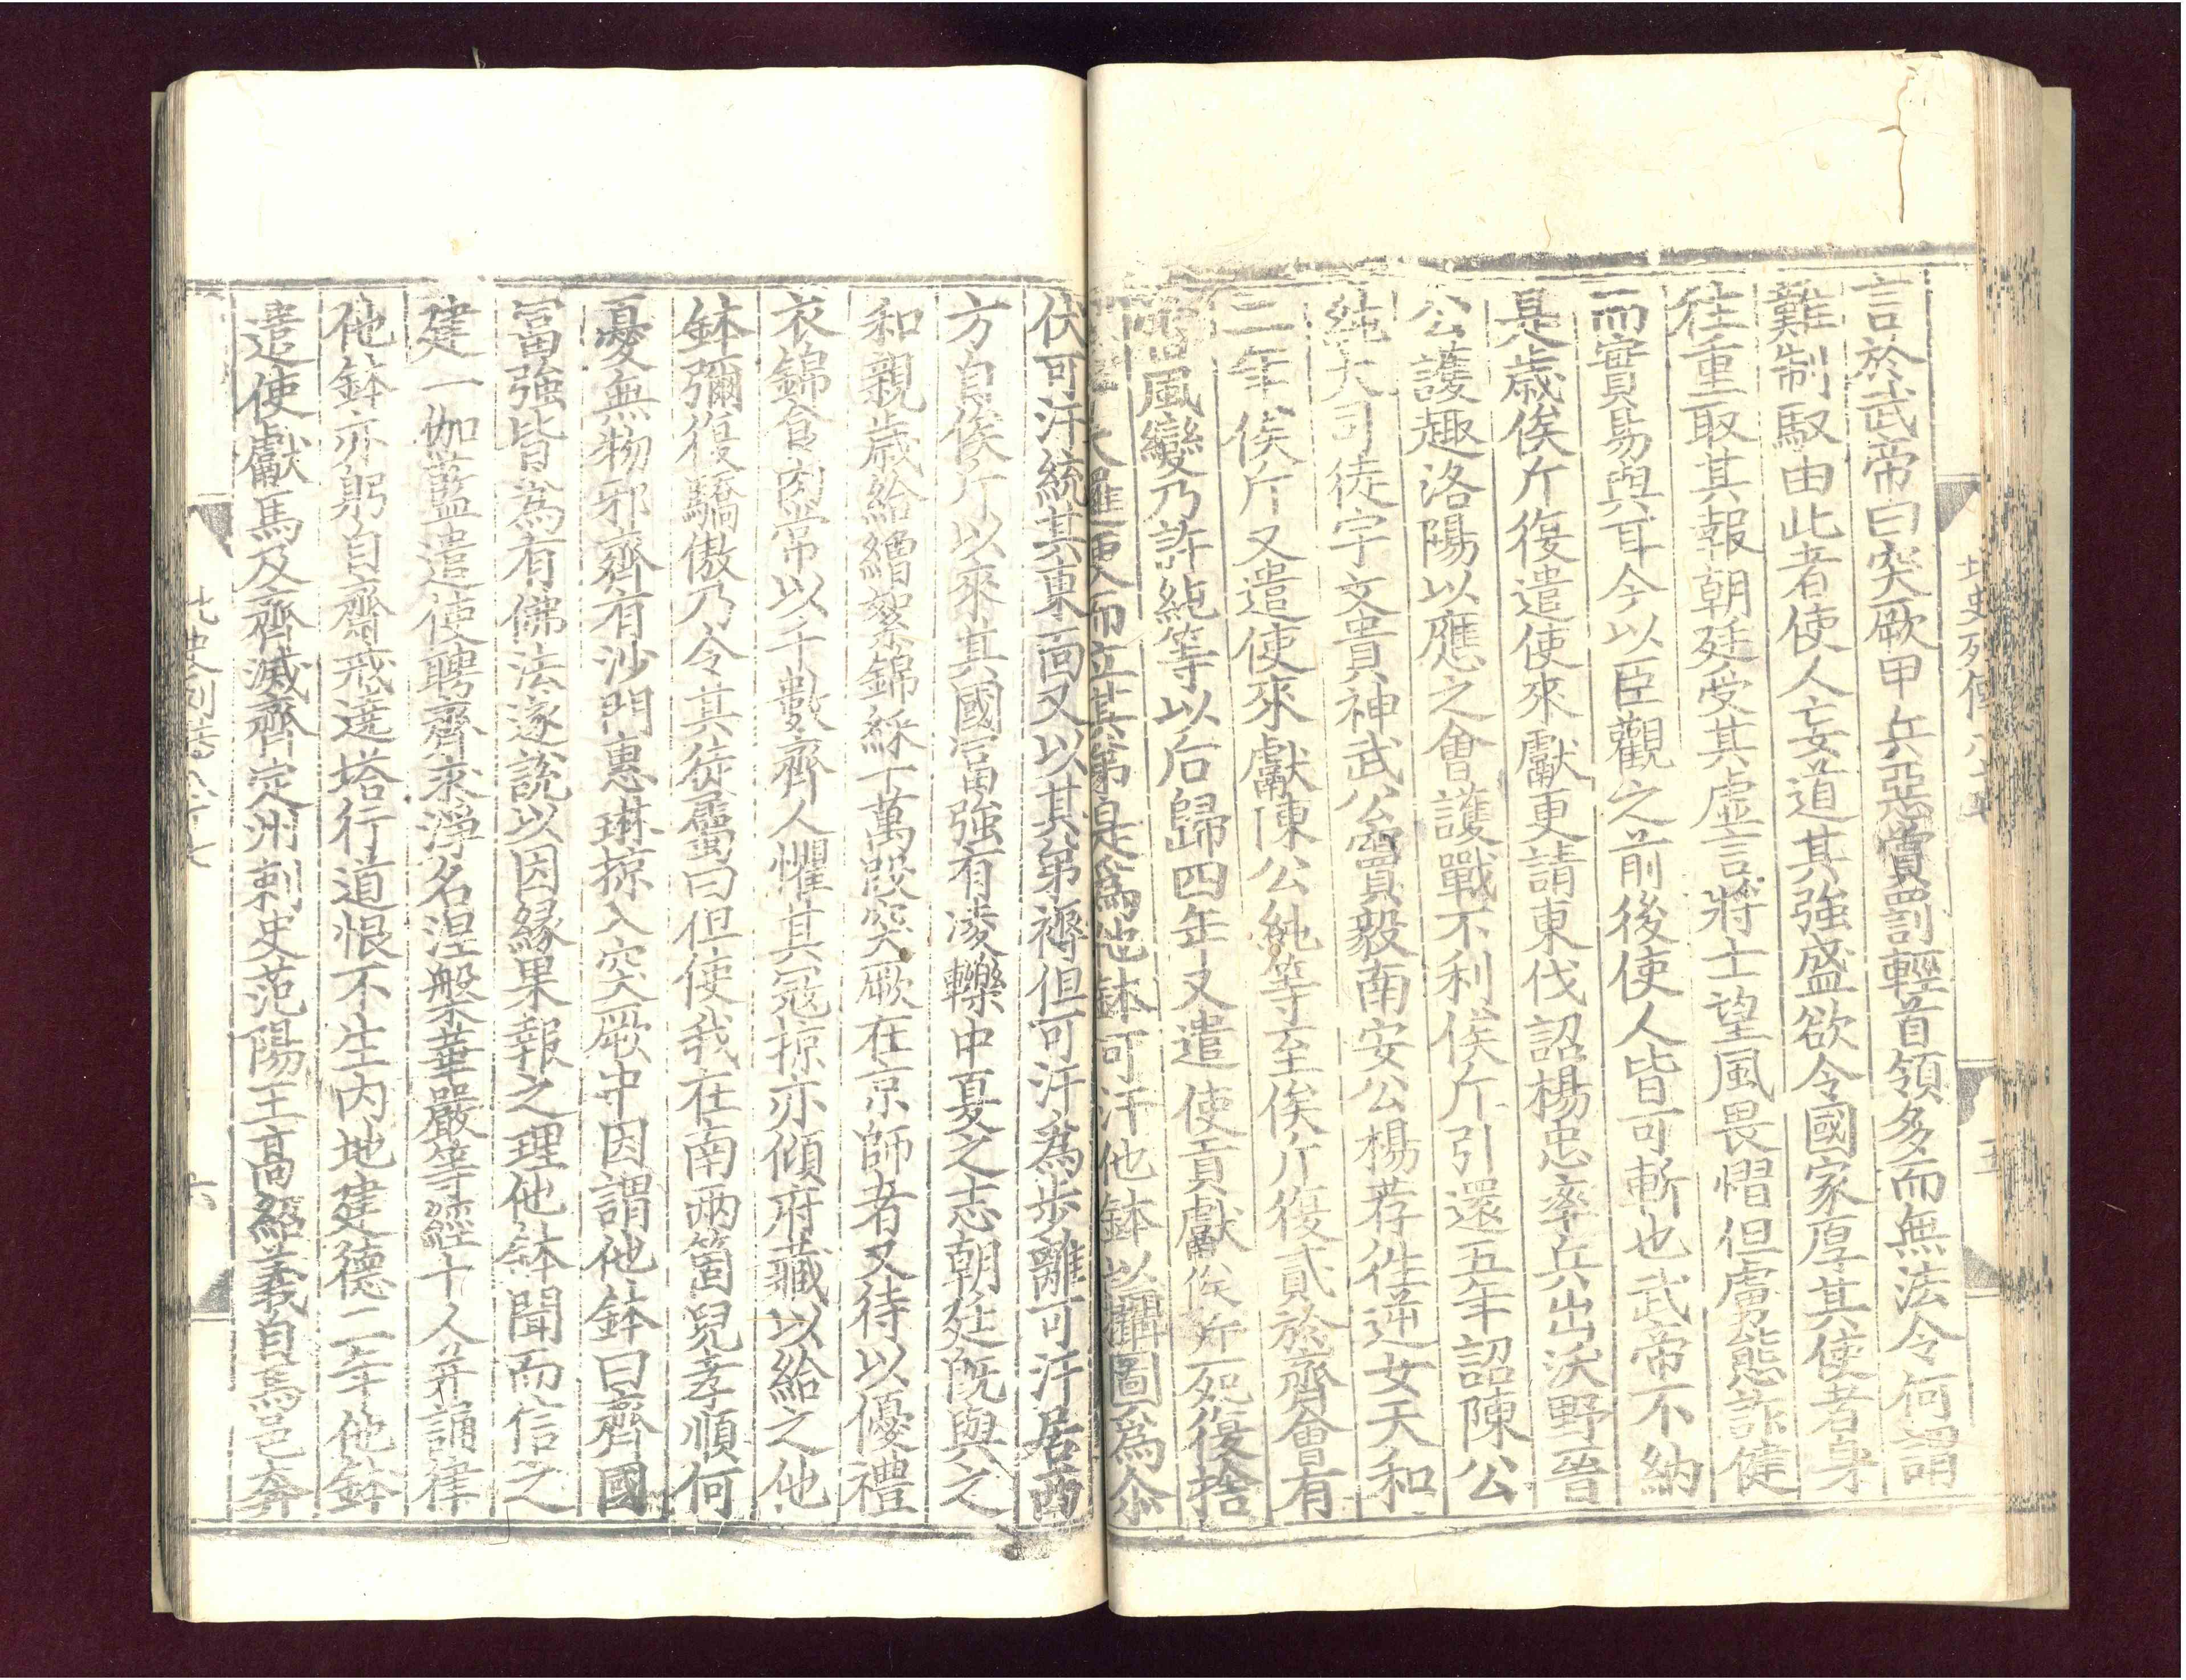 言於武帝曰突厥甲兵惡賞罰輕首領多而無法令何謂
難制馭由此者使人妄道其強盛欲令國家厚其使者身
往重取其報朝廷受其虛言將士望風畏慴但虜態詐健
而實易與耳今以臣觀之前後使人皆可斬也武帝不納
是歲俟斤復遣使來獻更請東伐詔楊忠率兵出沃野晉
公護趣洛陽以應之會護戰不利俟斤引還五年詔陳公
純大司徒宇文貴神武公竇毅南安公楊荐往逆女天和
二年俟斤又遣使來獻陳公純等至俟斤復貳於齊會有
風變乃許純等以后歸四年又遣使貢獻俟斤死復捨
大邏便而立其弟是爲他鉢可汗他鉢以攝圖爲尒
伏可汗統其東面又以其弟褥但可汗爲步離可汗居西
方自俟斤以來其國富強有凌轢中夏之志朝廷旣與之
和親歲給繒絮錦綵十萬段突厥在京師者又待以優禮
衣錦食肉常以千數齊人懼其冦掠亦傾府藏以給之他
鉢彌復驕傲乃令其徒屬曰但使我在南兩箇兒孝順何
憂無物邪齊有沙門惠琳掠入突厥中因謂他鉢曰齊國
冨強皆爲有佛法遂說以因緣果報之理他鉢聞而信之
建一伽藍遣使聘齊求淨名涅槃華嚴等經十人并誦律
他鉢亦躬自齋戒遶塔行道恨不生内地建德二年他鉢
遣使獻馬及齊滅齊定州刺史范陽王高紹義自馬邑奔
北史列傳八十七
六
北史列傳八十七
五